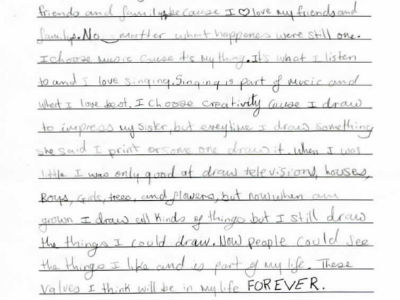 friends and family because I ♡ love my friends and
family. No matter what happens were still one.
I choose music cause it's my thing. It's what I listen
to and I love singing. Singing is part of music and
what I love best. I choose creativity cause I draw
to impress my sister, but everytime I draw something
she said I print or some one draw it. When I was
little I was only good at draw televisions, houses,
Boys, Girls, trees, and flowers, but now when am
grown I draw all kinds of things but I still draw
the things I could draw. Now people could see
the things I like and is part of my life. These
values I think will be in my life FOREVER.